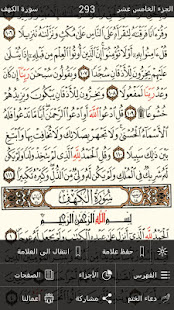 الجزء الخامس عشر
293
سورة الكهف
وَقُرْءَانًا فَرَقْنَٰهُ لِتَقْرَأَهُۥ عَلَى ٱلنَّاسِ عَلَىٰ مُكْثٍ وَنَزَّلْنَٰهُ تَنزِيلًا ١٠٦
قُلْ ءَامِنُوا۟ بِهِۦٓ أَوْ لَا تُؤْمِنُوٓا۟ إِنَّ ٱلَّذِينَ أُوتُوا۟ ٱلْعِلْمَ مِن قَبْلِهِۦٓ
إِذَا يُتْلَىٰ عَلَيْهِمْ يَخِرُّونَ لِلْأَذْقَانِ سُجَّدًا ١٠٧ وَيَقُولُونَ سُبْحَٰنَ
رَبِّنَآ إِن كَانَ وَعْدُ رَبِّنَا لَمَفْعُولًا ١٠٨ وَيَخِرُّونَ لِلْأَذْقَانِ
يَبْكُونَ وَيَزِيدُهُمْ خُشُوعًا ١٠٩ قُلِ ٱدْعُوا۟ ٱللَّهَ أَوِ ٱدْعُوا۟ ٱلرَّحْمَٰنَ
أَيًّا مَّا تَدْعُوا۟ فَلَهُ ٱلْأَسْمَآءُ ٱلْحُسْنَىٰ وَلَا تَجْهَرْ بِصَلَاتِكَ وَلَا تُخَافِتْ
بِهَا وَٱبْتَغِ بَيْنَ ذَٰلِكَ سَبِيلًا ١١٠ وَقُلِ ٱلْحَمْدُ لِلَّهِ ٱلَّذِى لَمْ يَتَّخِذْ
وَلَدًا وَلَمْ يَكُن لَّهُۥ شَرِيكٌ فِى ٱلْمُلْكِ وَلَمْ يَكُن لَّهُۥ
وَلِىٌّ مِّنَ ٱلذُّلِّ وَكَبِّرْهُ تَكْبِيرًا ١١١
سُورَةُ الكَهْفِ
بِسْمِ ٱللَّهِ ٱلرَّحْمَٰنِ ٱلرَّحِيمِ
حفظ علامة
انتقال الى العلامة
الفهرس
الأجزاء
الصفحات
دعاء الختم
مشاركة
أعمالنا